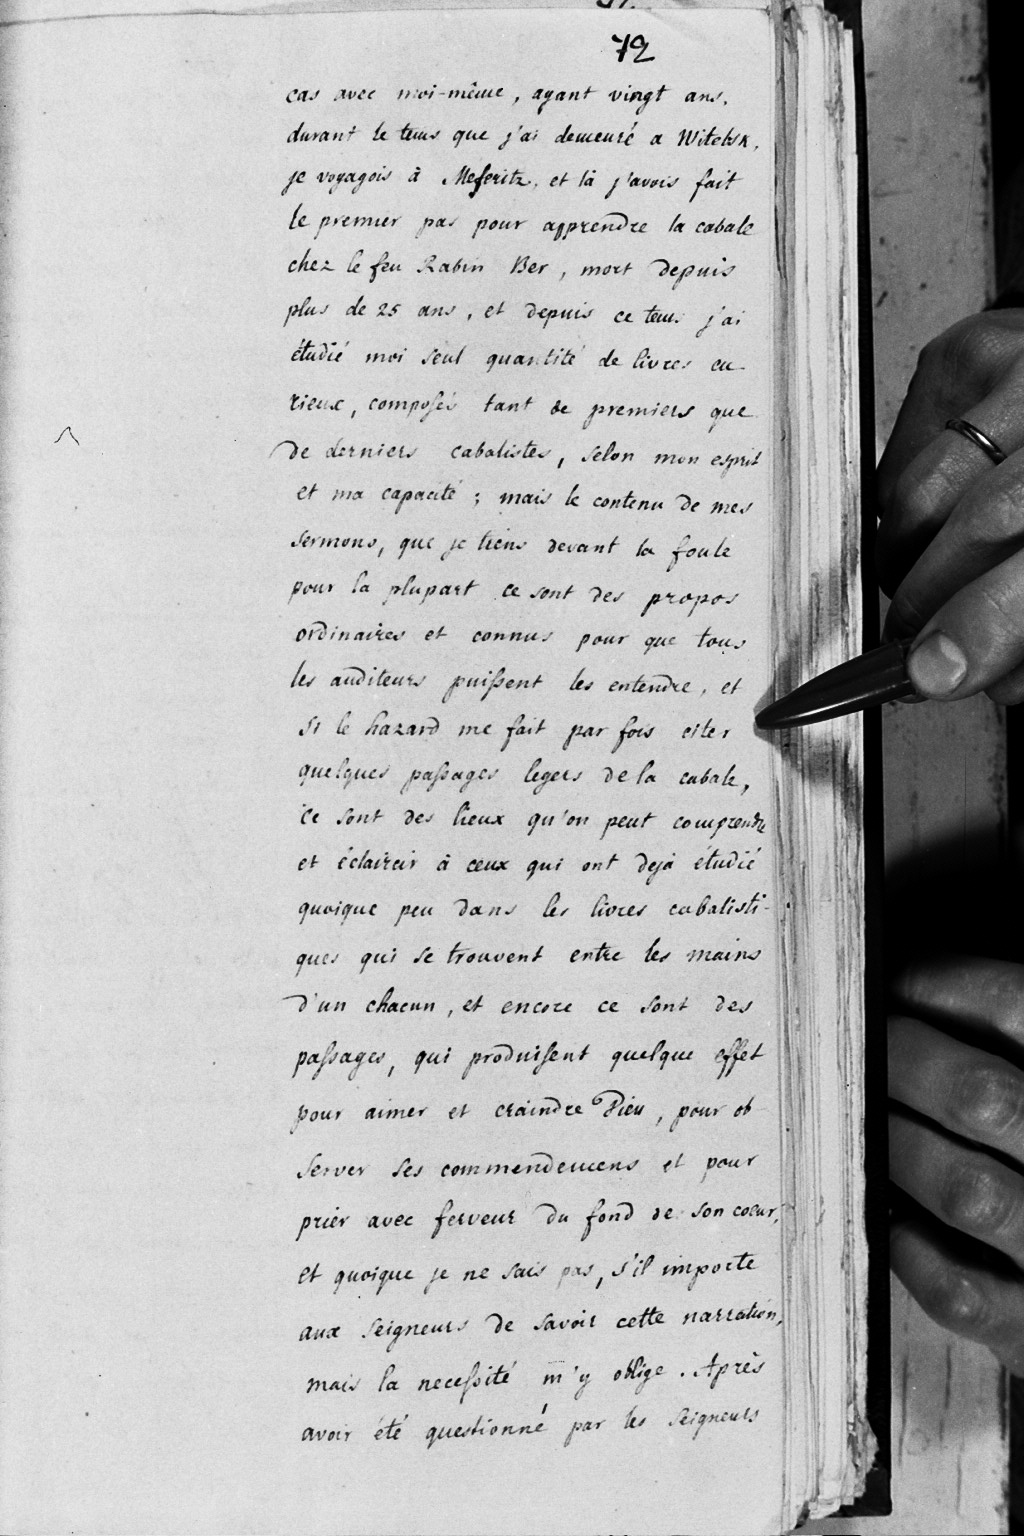 72
cas avec moi-même, ayant vingt ans,
durant le tems que j'ai demeuré a Witebsk,
je voyagois à Meseritz, et là j'avois fait
le premier pas pour apprendre la cabale
chez le feu Rabin Ber, mort depuis
plus de 25 ans, et depuis ce tems j'ai
étudié moi seul quantité de livres cu-
rieux, composés tant de premiers que
de derniers cabalistes, selon mon esprit
et ma capacité ; mais le contenu de mes
sermons, que je tiens devant la foule
pour la plupart ce sont des propos
ordinaires et connus pour que tous
les auditeurs puissent les entendre, et
si le hazard me fait par fois citer
quelques passages legers de la cabale,
ce sont des lieux qu'on peut comprendre
et éclaircir à ceux qui ont dejà étudié
quoique peu dans les livres cabalisti-
ques qui se trouvent entre les mains
d'un chacun, et encore ce sont des
passages, qui produisent quelque effet
pour aimer et craindre Dieu, pour ob-
server ses commendemens et pour
prier avec ferveur du fond de son coeur,
et quoique je ne sais pas, s'il importe
aux seigneurs de savoir cette narration,
mais la necessité m'y oblige. Après
avoir été questionné par les seigneurs